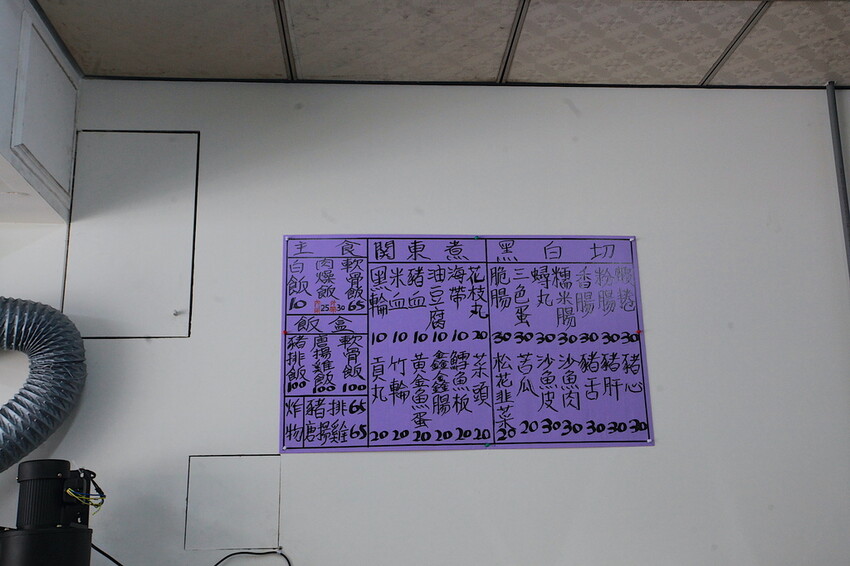 主食
白飯 10
肉燥飯 25 30
軟骨飯 65
飯盒
豬排飯 100
唐揚雞飯 100
軟骨飯 100
炸物
豬排 65
唐揚雞 65
関東煮
黑輪 10
米血 10
豬血 10
油豆腐 10
海帶 10
花枝丸 20
貢丸 20
竹輪 20
黃金魚蛋 20
鑫鑫腸 20
鱈魚板 20
菜頭 20
黑白切
脆腸 30
三色蛋 30
蟳丸 30
糯米腸 30
香腸 30
粉腸 30
蝦捲 30
松花韭菜 20
苦瓜 20
沙魚皮 30
沙魚肉 30
豬舌 30
豬肝 30
豬心 30